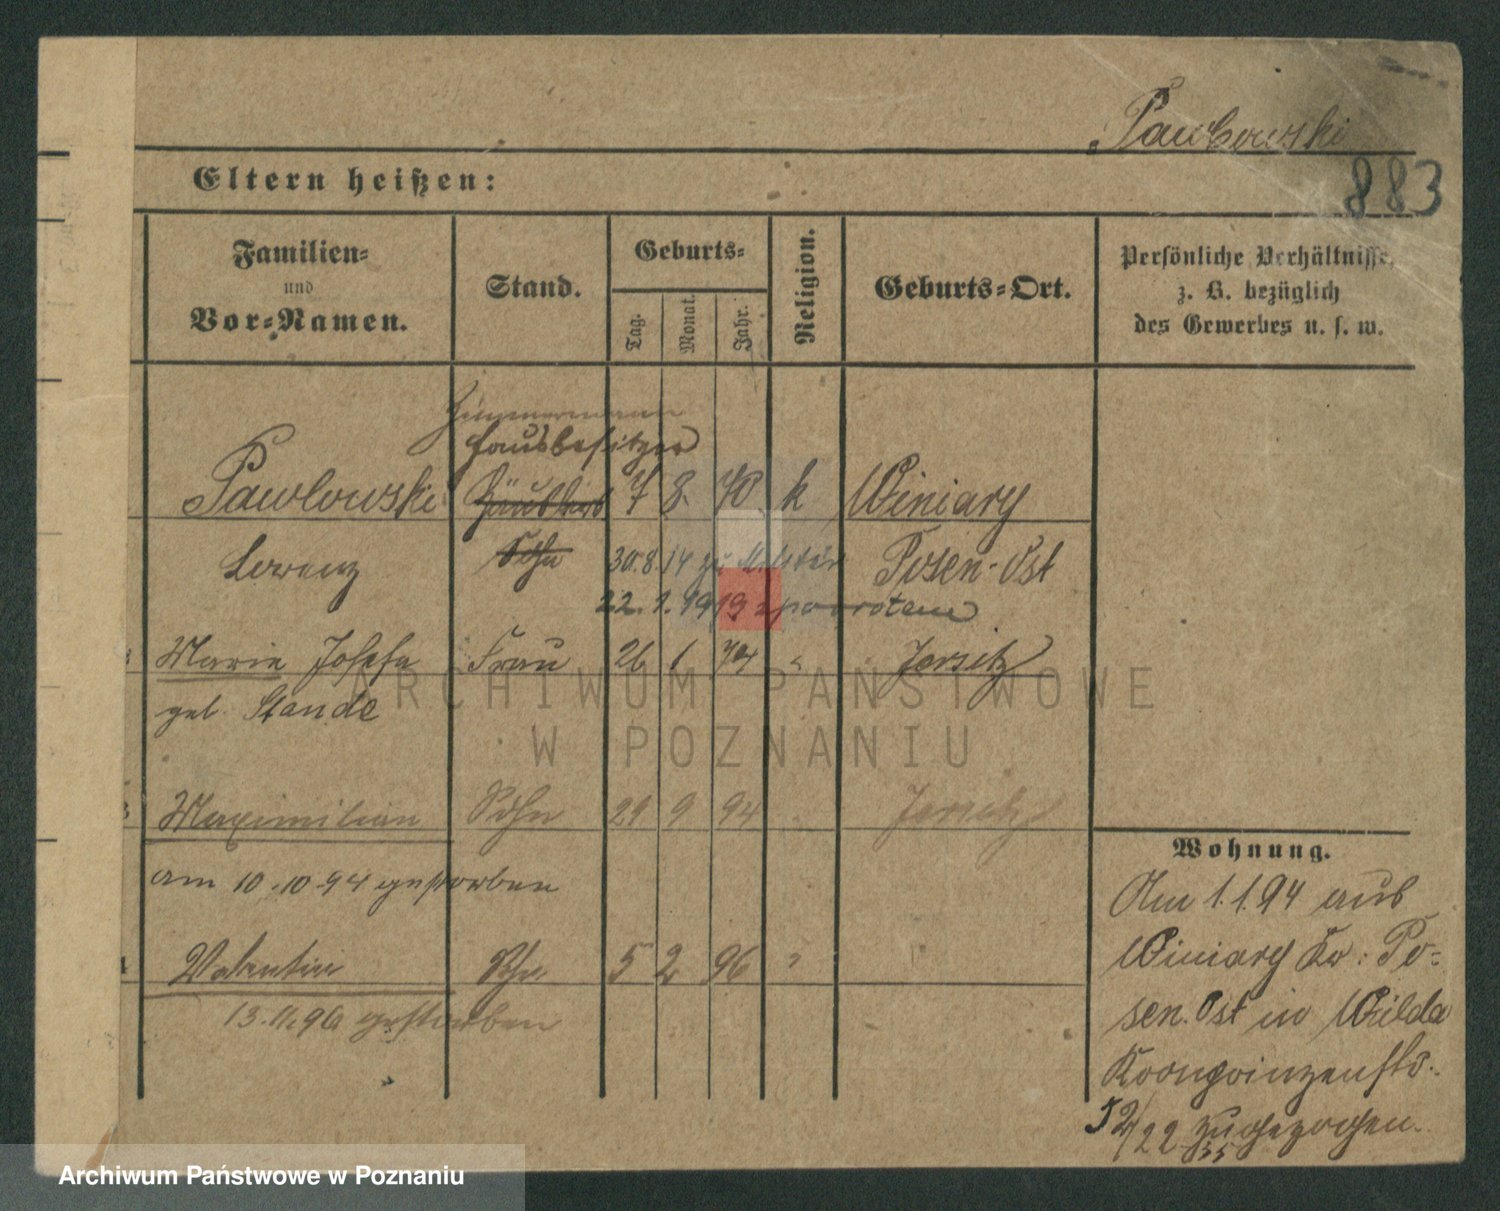 Pawlowski
883
Eltern heißen:
Familien-
und
Vor-Namen.
Stand.
Geburts-
Tag.
Monat.
Jahr.
Religion.
Geburts-Ort.
Persönliche Verhältnisse,
z. B. bezüglich
des Gewerbes u. s. w.
Zimmermann
Hausbesitzer
Pawlowski 7 8. 70 k Winiary
Lorenz Sohn 30.8.14 zu Militär Posen-Ost
22.1.1919 z powrotem
Maria Josefa Frau 26 1 74 " Jersitz
geb. Stande
Maximilian Sohn 29 9 94 Jersitz
am 10.10.94 gestorben
Valentin Sohn 5 2 96 "
13.11.96 gestorben
Wohnung.
Am 1.1.94 aus
Winiary Kr: Po-
sen. Ost in Wilda
Kronprinzenstr.
52/22 zugezogen.
35
ARCHIWUM PAŃSTWOWE
W POZNANIU
Archiwum Państwowe w Poznaniu